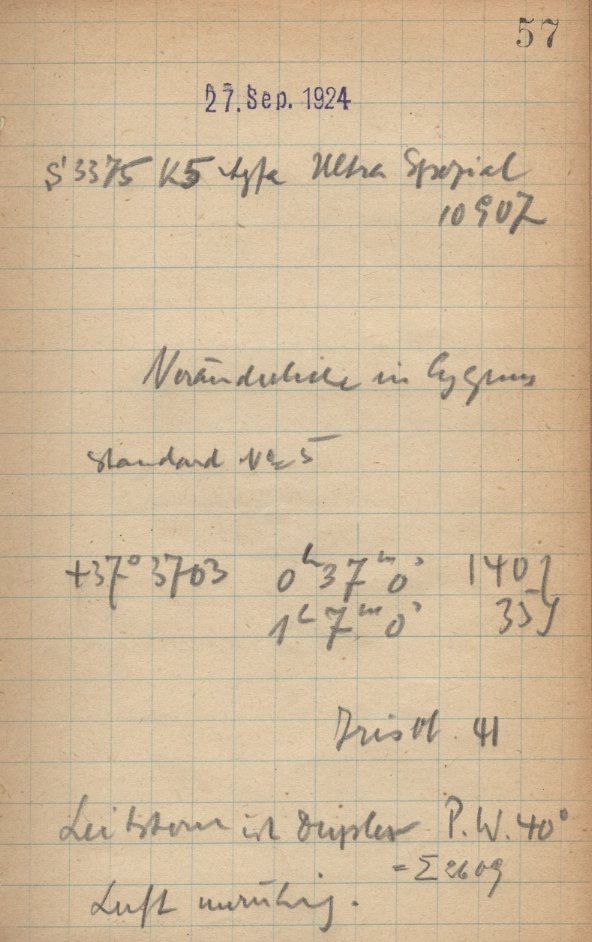 57
27. Sep. 1924
S 3375 K5 Agfa Ultra Spezial
10907
Veränderliche in Cygnus
Standard No 5
+37° 3703 0h 37m 0s 140
1h 7m 0s 35
Leitstern ist Duplex P.W. 40°
= Σ 2609
Luft unruhig.